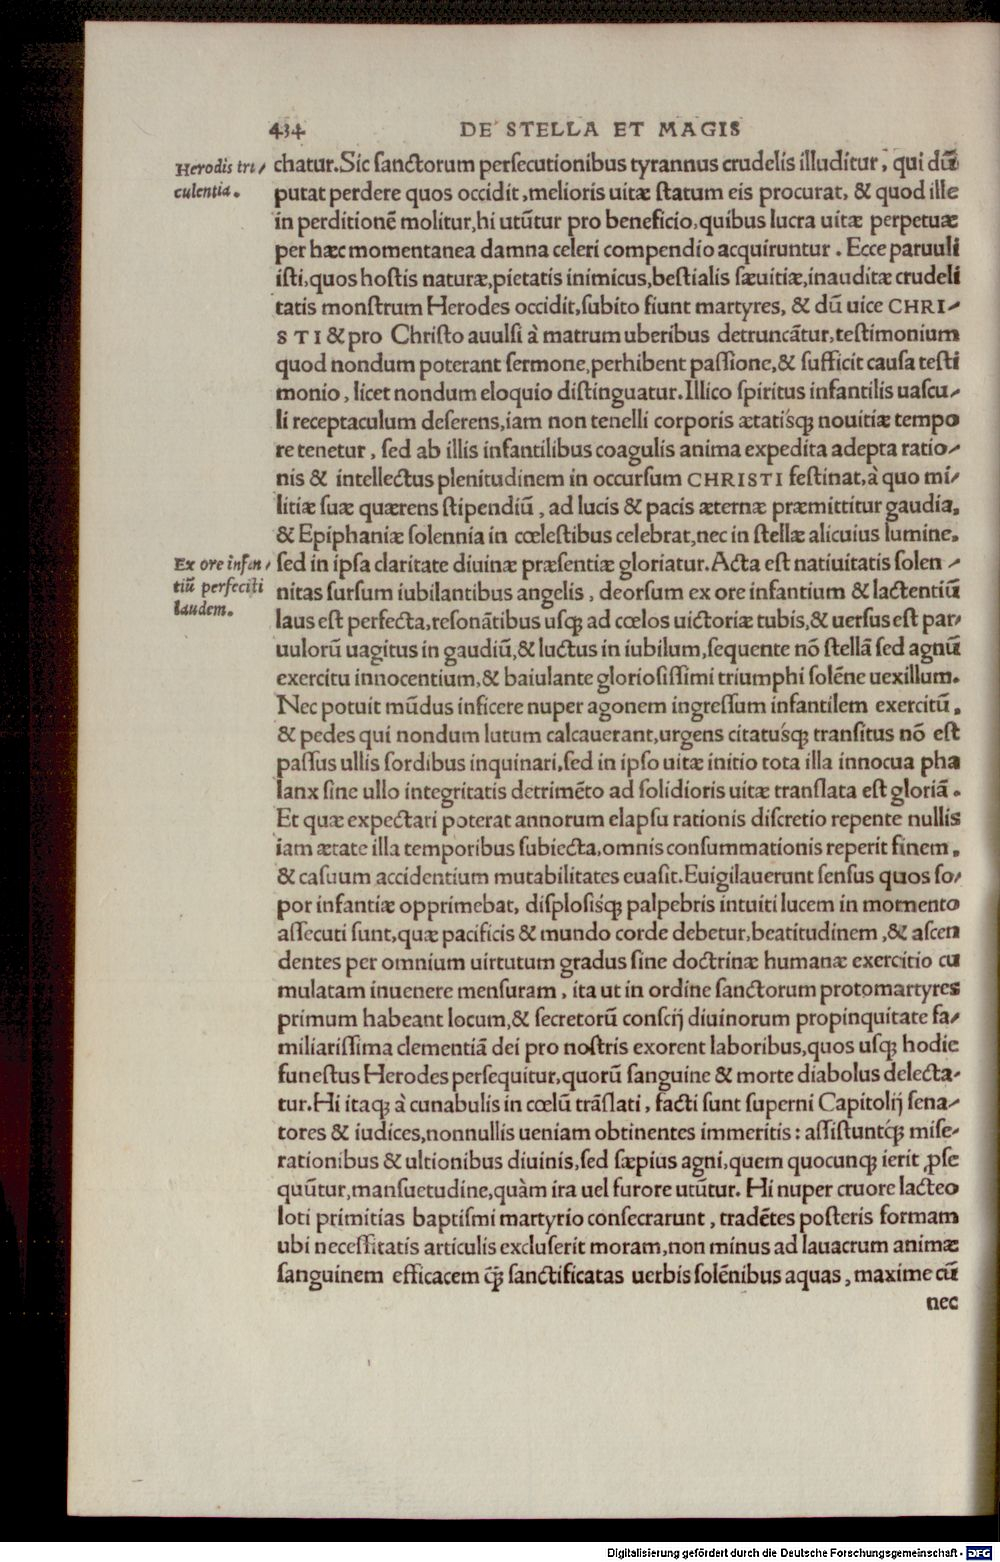 434 DE STELLA ET MAGIS
Herodis tru⸗
culentia.
chatur. Sic sanctorum persecutionibus tyrannus crudelis illuditur, qui dū
putat perdere quos occidit, melioris uitæ statum eis procurat, & quod ille
in perditionē molitur, hi utūtur pro beneficio, quibus lucra uitæ perpetuæ
per hæc momentanea damna celeri compendio acquiruntur. Ecce paruuli
isti, quos hostis naturæ, pietatis inimicus, bestialis sæuitiæ, inauditæ crudeli
tatis monstrum Herodes occidit, subito fiunt martyres, & dū uice CHRI⸗
STI & pro Christo auulsi à matrum uberibus detruncātur, testimonium
quod nondum poterant sermone, perhibent passione, & sufficit causa testi
monio, licet nondum eloquio distinguatur. Illico spiritus infantilis uascu⸗
li receptaculum deserens, iam non tenelli corporis ætatisq́ꝫ nouitiæ tempo
re tenetur, sed ab illis infantilibus coagulis anima expedita adepta ratio⸗
nis & intellectus plenitudinem in occursum CHRISTI festinat, à quo mi⸗
litiæ suæ quærens stipendiū, ad lucis & pacis æternæ præmittitur gaudia,
& Epiphaniæ solennia in cœlestibus celebrat, nec in stellæ alicuius lumine,
Ex ore infan⸗
tiū perfecisti
laudem.
sed in ipsa claritate diuinæ præsentiæ gloriatur. Acta est natiuitatis solen⸗
nitas sursum iubilantibus angelis, deorsum ex ore infantium & lactentiū
laus est perfecta, resonātibus usqꝫ ad cœlos uictoriæ tubis, & uersus est par⸗
uulorū uagitus in gaudiū, & luctus in iubilum, sequente nō stellā sed agnū
exercitu innocentium, & baiulante gloriosissimi triumphi solēne uexillum.
Nec potuit mūdus inficere nuper agonem ingressum infantilem exercitū,
& pedes qui nondum lutum calcauerant, urgens citatusq́ꝫ transitus nō est
passus ullis sordibus inquinari, sed in ipso uitæ initio tota illa innocua pha
lanx sine ullo integritatis detrimēto ad solidioris uitæ translata est gloriā.
Et quæ expectari poterat annorum elapsu rationis discretio repente nullis
iam ætate illa temporibus subiecta, omnis consummationis reperit finem,
& casuum accidentium mutabilitates euasit. Euigilauerunt sensus quos so⸗
por infantiæ opprimebat, displosisq́ꝫ palpebris intuiti lucem in momento
assecuti sunt, quæ pacificis & mundo corde debetur, beatitudinem, & ascen
dentes per omnium uirtutum gradus sine doctrinæ humanæ exercitio cu
mulatam inuenere mensuram, ita ut in ordine sanctorum protomartyres
primum habeant locum, & secretorū conscij diuinorum propinquitate fa⸗
miliarissima clementiā dei pro nostris exorent laboribus, quos usqꝫ hodie
funestus Herodes persequitur, quorū sanguine & morte diabolus delecta⸗
tur. Hi itaqꝫ à cunabulis in cœlū trāslati, facti sunt superni Capitolij sena⸗
tores & iudices, nonnullis ueniam obtinentes immeritis: assistuntq́ꝫ mise⸗
rationibus & ultionibus diuinis, sed sæpius agni, quem quocunqꝫ ierit ꝓse
quūtur, mansuetudine, quàm ira uel furore utūtur. Hi nuper cruore lacteo
loti primitias baptismi martyrio consecrarunt, tradētes posteris formam
ubi necessitatis articulis excluserit moram, non minus ad lauacrum animæ
sanguinem efficacem q̄ꝫ sanctificatas uerbis solēnibus aquas, maxime cū
nec
Digitalisierung gefördert durch die Deutsche Forschungsgemeinschaft - DFG